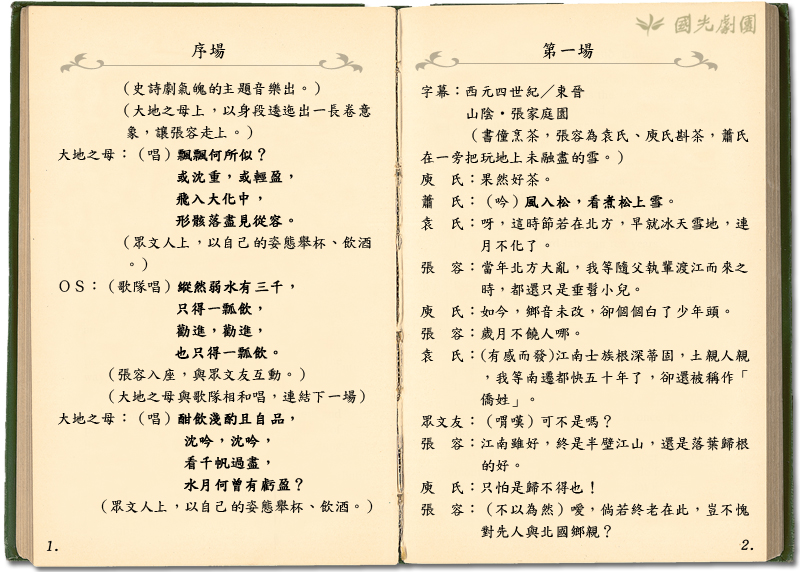 序場
（史詩劇氣魄的主題音樂出。）
（大地之母上，以身段逶迤出一長卷意
象，讓張容走上。）
大地之母：（唱）飄飄何所似？
或沈重，或輕盈，
飛入大化中，
形骸落盡見從容。
（眾文人上，以自己的姿態舉杯、飲酒
。）
ＯＳ：（歌隊唱）縱然弱水有三千，
只得一瓢飲，
勸進，勸進，
也只得一瓢飲。
（張容入座，與眾文友互動。）
（大地之母與歌隊相和唱，連結下一場）
大地之母：（唱）酣飲淺酌且自品，
沈吟，沈吟，
看千帆過盡，
水月何曾有虧盈？
（眾文人上，以自己的姿態舉杯、飲酒。）
1.
國光劇團
第一場
字幕：西元四世紀／東晉
山陰‧張家庭園
（書僮烹茶，張容為袁氏、庾氏斟茶，蕭氏
在一旁把玩地上未融盡的雪。）
庾　氏：果然好茶。
蕭　氏：（吟）風入松，看煮松上雪。
袁　氏：呀，這時節若在北方，早就冰天雪地，連
月不化了。
張　容：當年北方大亂，我等隨父執輩渡江而來之
時，都還只是垂髫小兒。
庾　氏：如今，鄉音未改，卻個個白了少年頭。
張　容：歲月不饒人哪。
袁　氏：（有感而發）江南士族根深蒂固，土親人親
，我等南遷都快五十年了，卻還被稱作「
僑姓」。
眾文友：（喟嘆）可不是嗎？
張　容：江南雖好，終是半壁江山，還是落葉歸根
的好。
庾　氏：只怕是歸不得也！
張　容：（不以為然）噯，倘若終老在此，豈不愧
對先人與北國鄉親？
2.